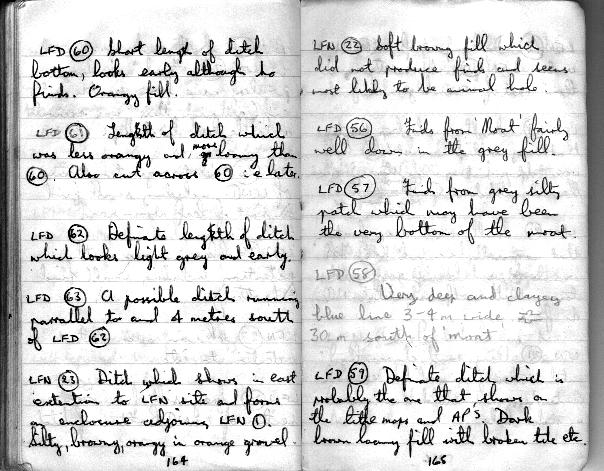 LFD 60 Short length of ditch
bottom, looks early although no
finds. Orangy fill.
LFD 61 Lengkth of ditch which
was less orangy and more loamy than
60. Also cut across 60 i.e later.
LFD 62 Definate lengkth of ditch
which looks light grey and early.
LFD 63 A possible ditch running
parrallel to and 4 metres south
of LFD 62
LFN 23 Ditch which shows in east
extention to LFN site and forms
an enclosure adjoining LFN 1.
Silty, browny, orangy in orange gravel.
164
LFN 22 Soft browny fill which
did not produce finds and seems
most likely to be animal hole.
LFD 56 Finds from 'Moat' fairly
well down in the grey fill.
LFD 57 Finds from grey silty
patch which may have been
the very bottom of the moat.
LFD 58
Very deep and clayey
blue line 3-4m wide
30m south of 'moat'
LFD 59 Definate ditch which is
probably the one that shows on
the tithe maps and AP's Dark
brown loamy fill with broken tile etc.
165